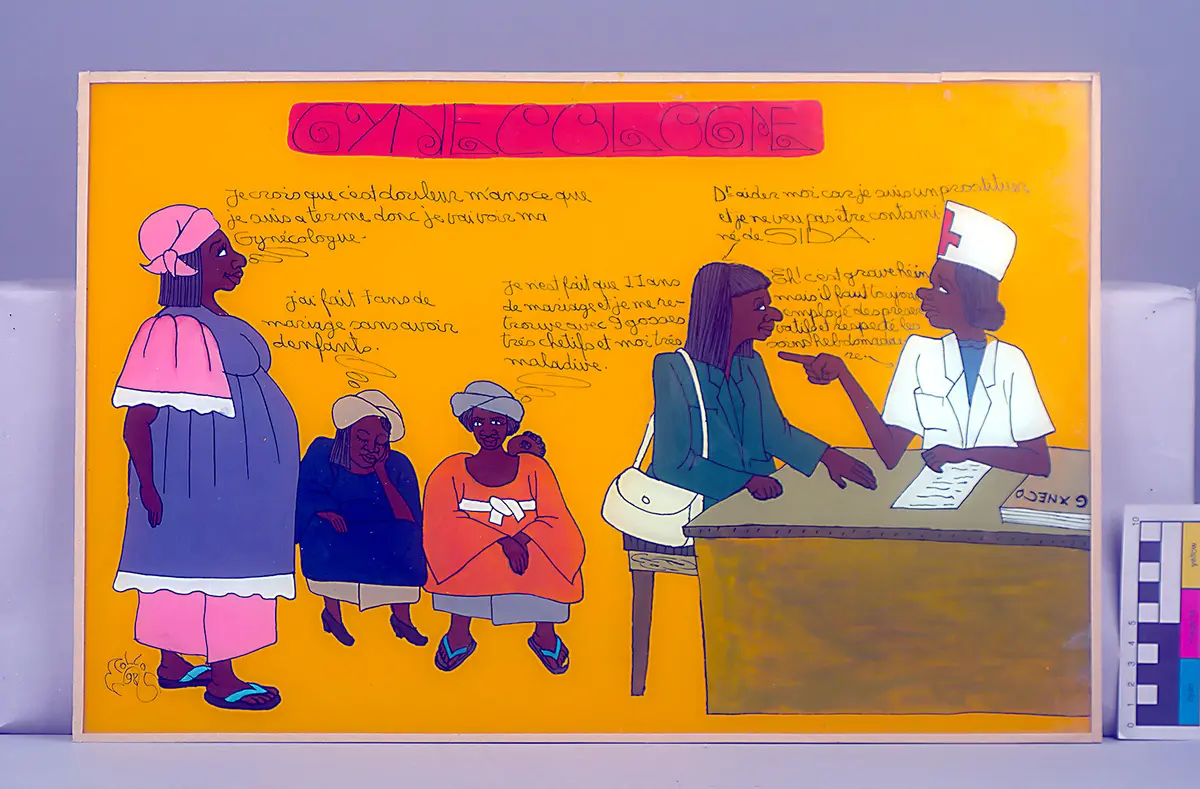 GYNECOLOGNE
Je crois que c'est douleur m'anoce que
je suis a terme donc je vai voir ma
Gynécologue.
j'ai fait 7 ans de
mariage sans avoir
d'enfants.
Je n'est fait que 11 ans
de mariage et je me re-
trouve avec 9 gosses
très chetifs et moi très
maladive.
Dr aider moi car je suis un prostituer
et je ne veu pas être contami
né de SIDA.
Eh! c'est grave hein
mais il faut toujour
employé des préser
vatifs et respecté les
soins hebdomadai
re.
GYNECO
98
10
5
4
3
2
1
0
yellow